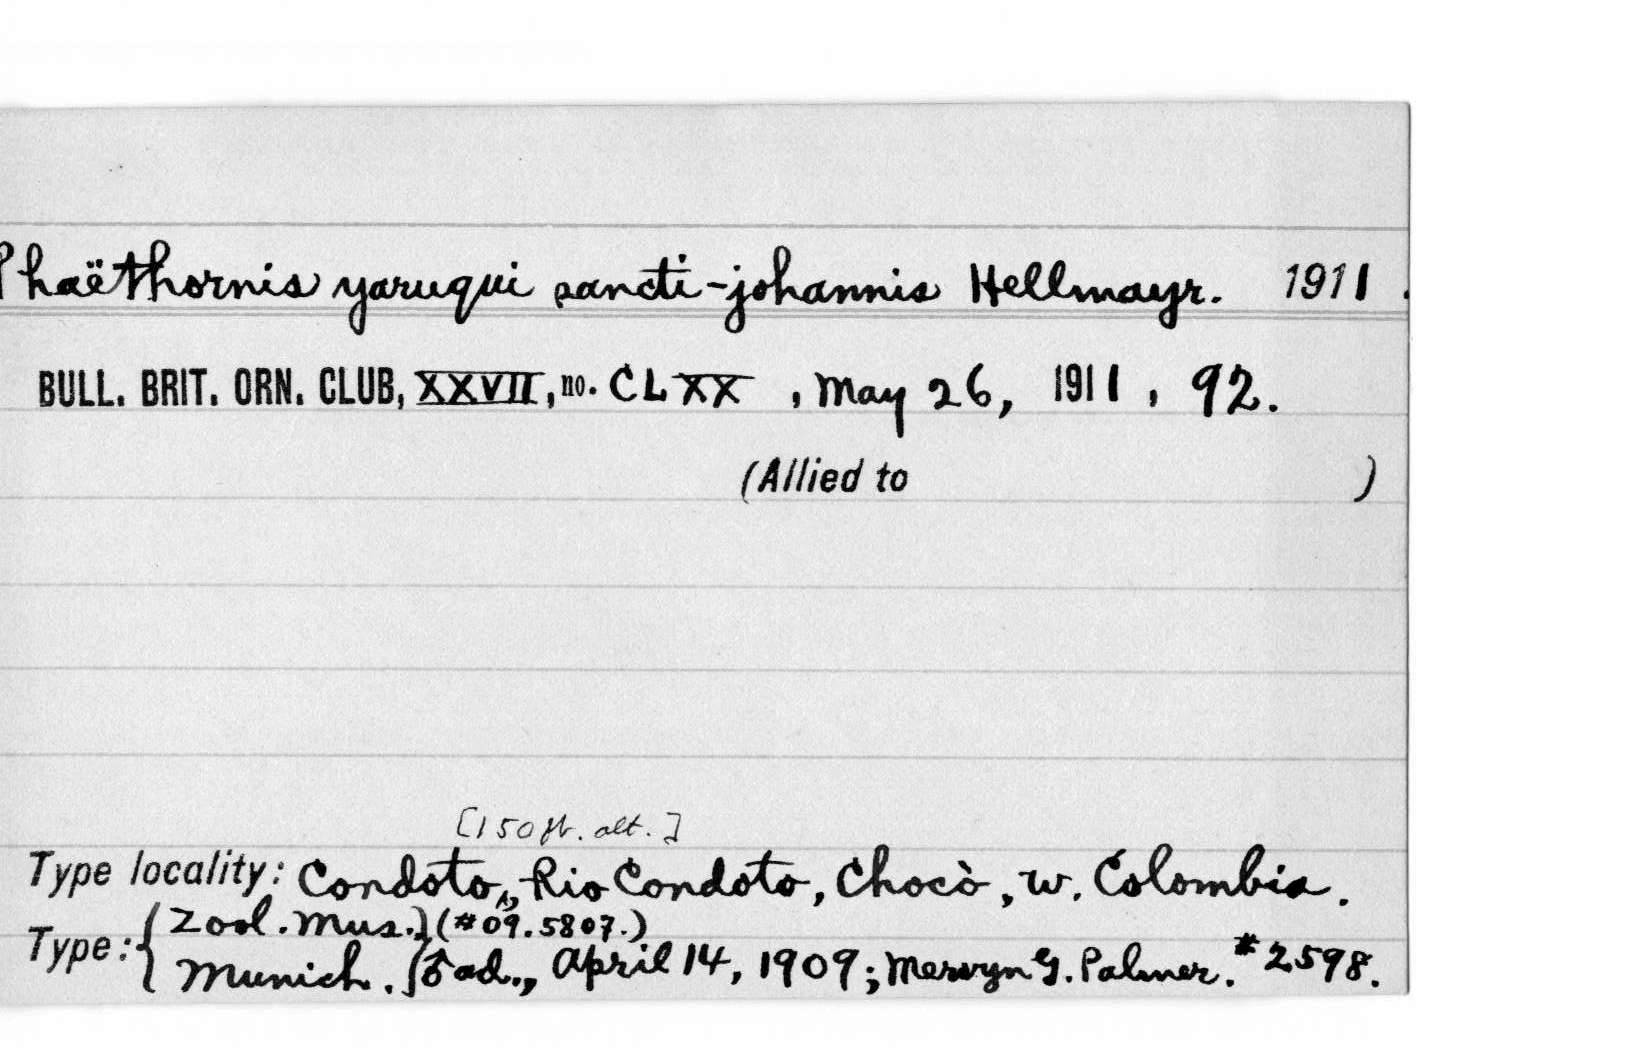 Phaëthornis yaruqui sancti-johannis Hellmayr. 1911.
BULL. BRIT. ORN. CLUB, XXVII, no. CLXX, May 26, 1911, 92.
(Allied to )
[150 ft. alt.]
Type locality: Condoto, Rio Condoto, Chocò, w. Colombia.
Type: { Zool. Mus. } (#09.5807.)
Munich. ♂ ad., April 14, 1909; Mervyn G. Palmer. #2598.